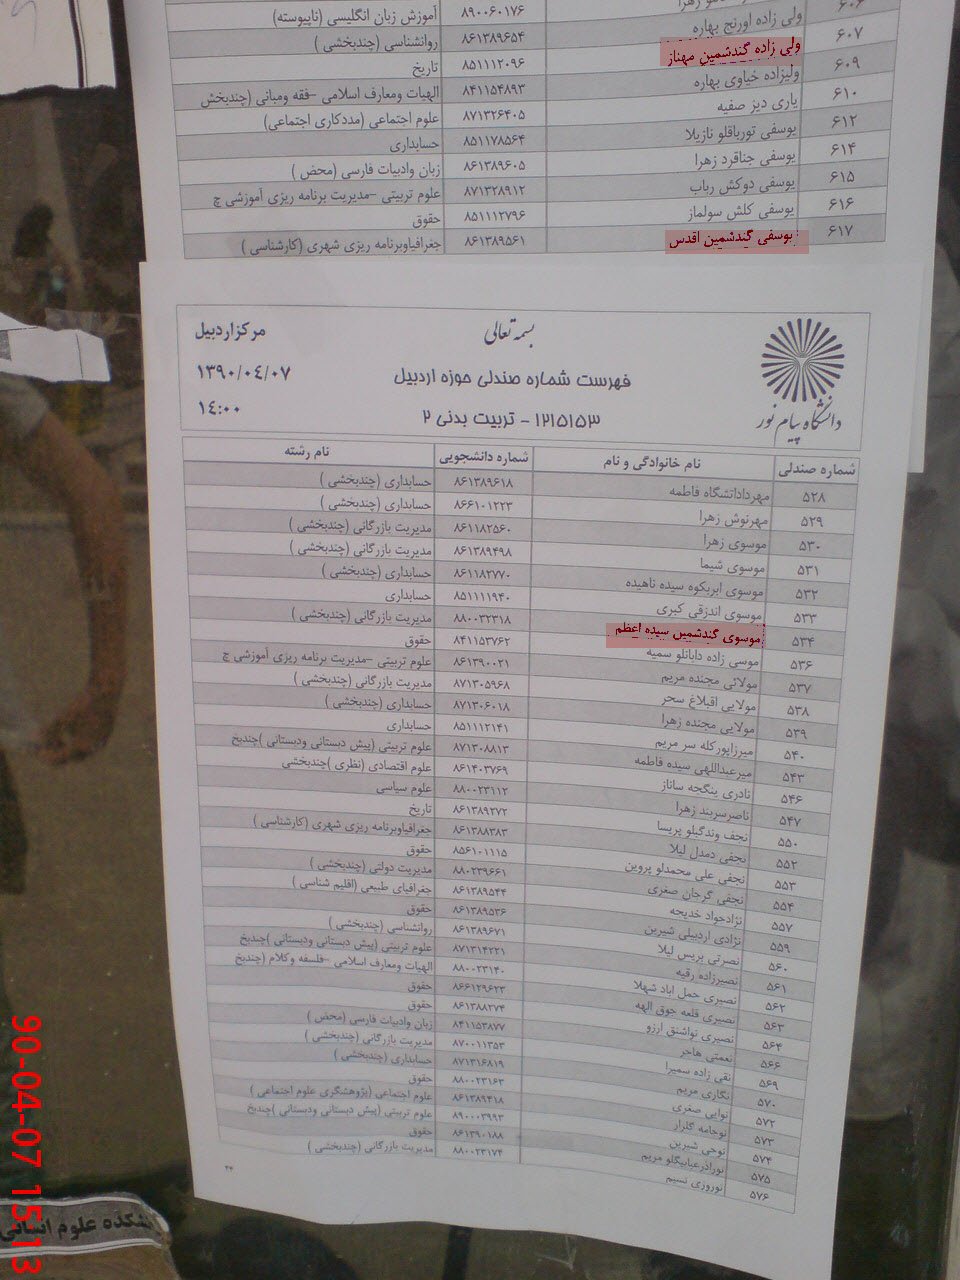 آموزش زبان انگلیسی (ناپیوسته) ۸۹۰۰۶۰۱۷۶ زهرا ۶۰۶
روانشناسی (چندبخشی ) ۸۶۱۳۸۹۶۵۴ ولی زاده اورنج بهاره ۶۰۷
تاریخ ۸۵۱۱۱۲۰۹۶ ولی زاده گندشمین مهناز ۶۰۹
الهیات ومعارف اسلامی –فقه ومبانی (چندبخش ۸۴۱۱۵۴۸۹۳ ولیزاده خیاوی بهاره ۶۱۰
علوم اجتماعی (مددکاری اجتماعی) ۸۷۱۳۲۶۴۰۵ یاری دیز صفیه ۶۱۲
حسابداری ۸۵۱۱۷۸۵۶۴ یوسفی تورباقلو نازیلا ۶۱۴
زبان وادبیات فارسی (محض ) ۸۶۱۳۸۹۶۰۵ یوسفی جناقرد زهرا ۶۱۵
علوم تربیتی –مدیریت برنامه ریزی آموزشی چ ۸۷۱۳۲۸۹۱۲ یوسفی دوکش رباب ۶۱۶
حقوق ۸۵۱۱۱۲۷۹۶ یوسفی کلش سولماز ۶۱۷
جغرافیاوبرنامه ریزی شهری (کارشناسی ) ۸۶۱۳۸۹۵۶۱ یوسفی گندشمین اقدس
بسمه تعالی
مرکزاردبیل
فهرست شماره صندلی حوزه اردبیل
۱۳۹۰/۰۴/۰۷
۱۲۱۵۱۵۳ - تربیت بدنی ۲
۱۴:۰۰
دانشگاه پیام نور
شماره صندلی نام خانوادگی و نام شماره دانشجویی نام رشته
۵۲۸ مهرداداتشگاه فاطمه ۸۶۱۳۸۹۶۱۸ حسابداری (چندبخشی )
۵۲۹ مهرنوش زهرا ۸۶۶۱۰۱۲۲۳ حسابداری (چندبخشی )
۵۳۰ موسوی زهرا ۸۶۱۱۸۲۵۶۰ مدیریت بازرگانی (چندبخشی )
۵۳۱ موسوی شیما ۸۶۱۳۸۹۴۹۸ مدیریت بازرگانی (چندبخشی )
۵۳۲ موسوی ابربکوه سیده ناهیده ۸۶۱۱۸۲۷۷۰ حسابداری (چندبخشی )
۵۳۳ موسوی اندزقی کبری ۸۵۱۱۱۱۹۴۰ حسابداری
۵۳۴ موسوی گندشمین سیده اعظم ۸۸۰۰۳۲۳۱۸ مدیریت بازرگانی (چندبخشی )
۵۳۶ موسی زاده دابانلو سمیه ۸۴۱۱۵۳۷۶۲ حقوق
۵۳۷ مولائی مجنده مریم ۸۶۱۳۹۰۰۲۱ علوم تربیتی –مدیریت برنامه ریزی آموزشی چ
۵۳۸ مولایی اقبلاغ سحر ۸۷۱۳۰۵۹۶۸ مدیریت بازرگانی (چندبخشی )
۵۳۹ مولایی مجنده زهرا ۸۷۱۳۰۶۰۱۸ حسابداری (چندبخشی )
۵۴۰ میرزاپورکله سر مریم ۸۵۱۱۱۲۱۴۱ حسابداری
۵۴۳ میرعبداللهی سیده فاطمه ۸۷۱۳۰۸۸۱۳ علوم تربیتی (پیش دبستانی ودبستانی )چندبخ
۵۴۶ نادری ینگجه ساناز ۸۶۱۴۰۳۷۶۹ علوم اقتصادی (نظری )چندبخشی
۵۴۷ ناصرسربند زهرا ۸۸۰۰۲۳۱۱۲ علوم سیاسی
۵۵۰ نجف وندگیلو پریسا ۸۶۱۳۸۹۲۷۲ تاریخ
۵۵۲ نجفی دمدل لیلا ۸۶۱۳۸۸۳۸۳ جغرافیاوبرنامه ریزی شهری (کارشناسی )
۵۵۳ نجفی علی محمدلو پروین ۸۵۶۱۰۱۱۱۵ حقوق
۵۵۴ نجفی گرجان صغری ۸۸۰۲۳۹۶۶۱ مدیریت دولتی (چندبخشی )
۵۵۷ نژادجواد خدیجه ۸۶۱۳۸۹۵۴۴ جغرافیای طبیعی (اقلیم شناسی )
۵۵۹ نژادی اردبیلی شیرین ۸۶۱۳۸۹۵۳۶ حقوق
۵۶۰ نصرتی بریس لیلا ۸۶۱۳۸۹۶۷۱ روانشناسی (چندبخشی )
۵۶۱ نصیرزاده رقیه ۸۷۱۳۱۴۲۲۱ علوم تربیتی (پیش دبستانی ودبستانی )چندبخ
۵۶۲ نصیری حمل اباد شهلا ۸۸۰۰۲۳۱۴۰ الهیات ومعارف اسلامی –فلسفه وکلام (چندبخ
۵۶۳ نصیری قلعه جوق الهه ۸۶۶۱۲۹۶۲۳ حقوق
۵۶۴ نصیری نواشنق ارزو ۸۶۱۳۸۸۲۷۴ حقوق
۵۶۶ نعمتی هاجر ۸۴۱۱۵۳۸۷۷ زبان وادبیات فارسی (محض )
۵۶۹ نقی زاده سمیرا ۸۷۰۰۱۱۳۵۳ مدیریت بازرگانی (چندبخشی )
۵۷۰ نگاری مریم ۸۷۱۳۱۶۸۱۹ حسابداری (چندبخشی )
۵۷۲ نوایی صغری ۸۸۰۰۲۳۱۶۳ حقوق
۵۷۳ نوجامه گلزار ۸۶۱۳۸۹۴۱۸ علوم اجتماعی (پژوهشگری علوم اجتماعی )
۵۷۴ نوحی شیرین ۸۹۰۰۰۳۹۹۳ علوم تربیتی (پیش دبستانی ودبستانی )چندبخ
۵۷۵ نوراذرعبابیگلو مریم ۸۶۱۳۹۰۱۸۸ حقوق
۵۷۶ نوروزی نسیم ۸۸۰۰۲۳۱۷۴ مدیریت بازرگانی (چندبخشی )
۳۴
علوم انسانی
90-04-07 15:13